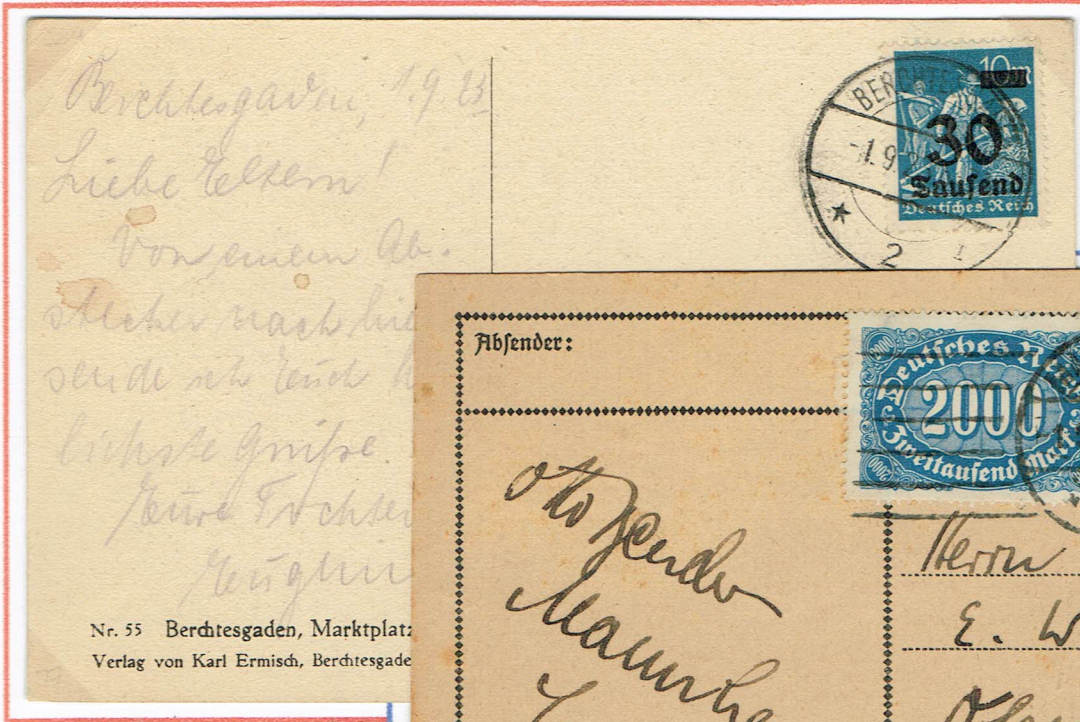 Berchtesgaden, 1.9.23
Liebe Eltern!
Von einem Ab-
stecher nach hie
sende ich Euch
lichste Grüße.
Eure Tochter
Nr. 55 Berchtesgaden, Marktplatz
Verlag von Karl Ermisch, Berchtesgade
10m
30
Tausend
Deutsches Reich
BERCHTE
1.9
2
I
Absender:
Deutsches Rei
2000
Zweitausend Mark
Otto
Mannhe
Herrn
E. W